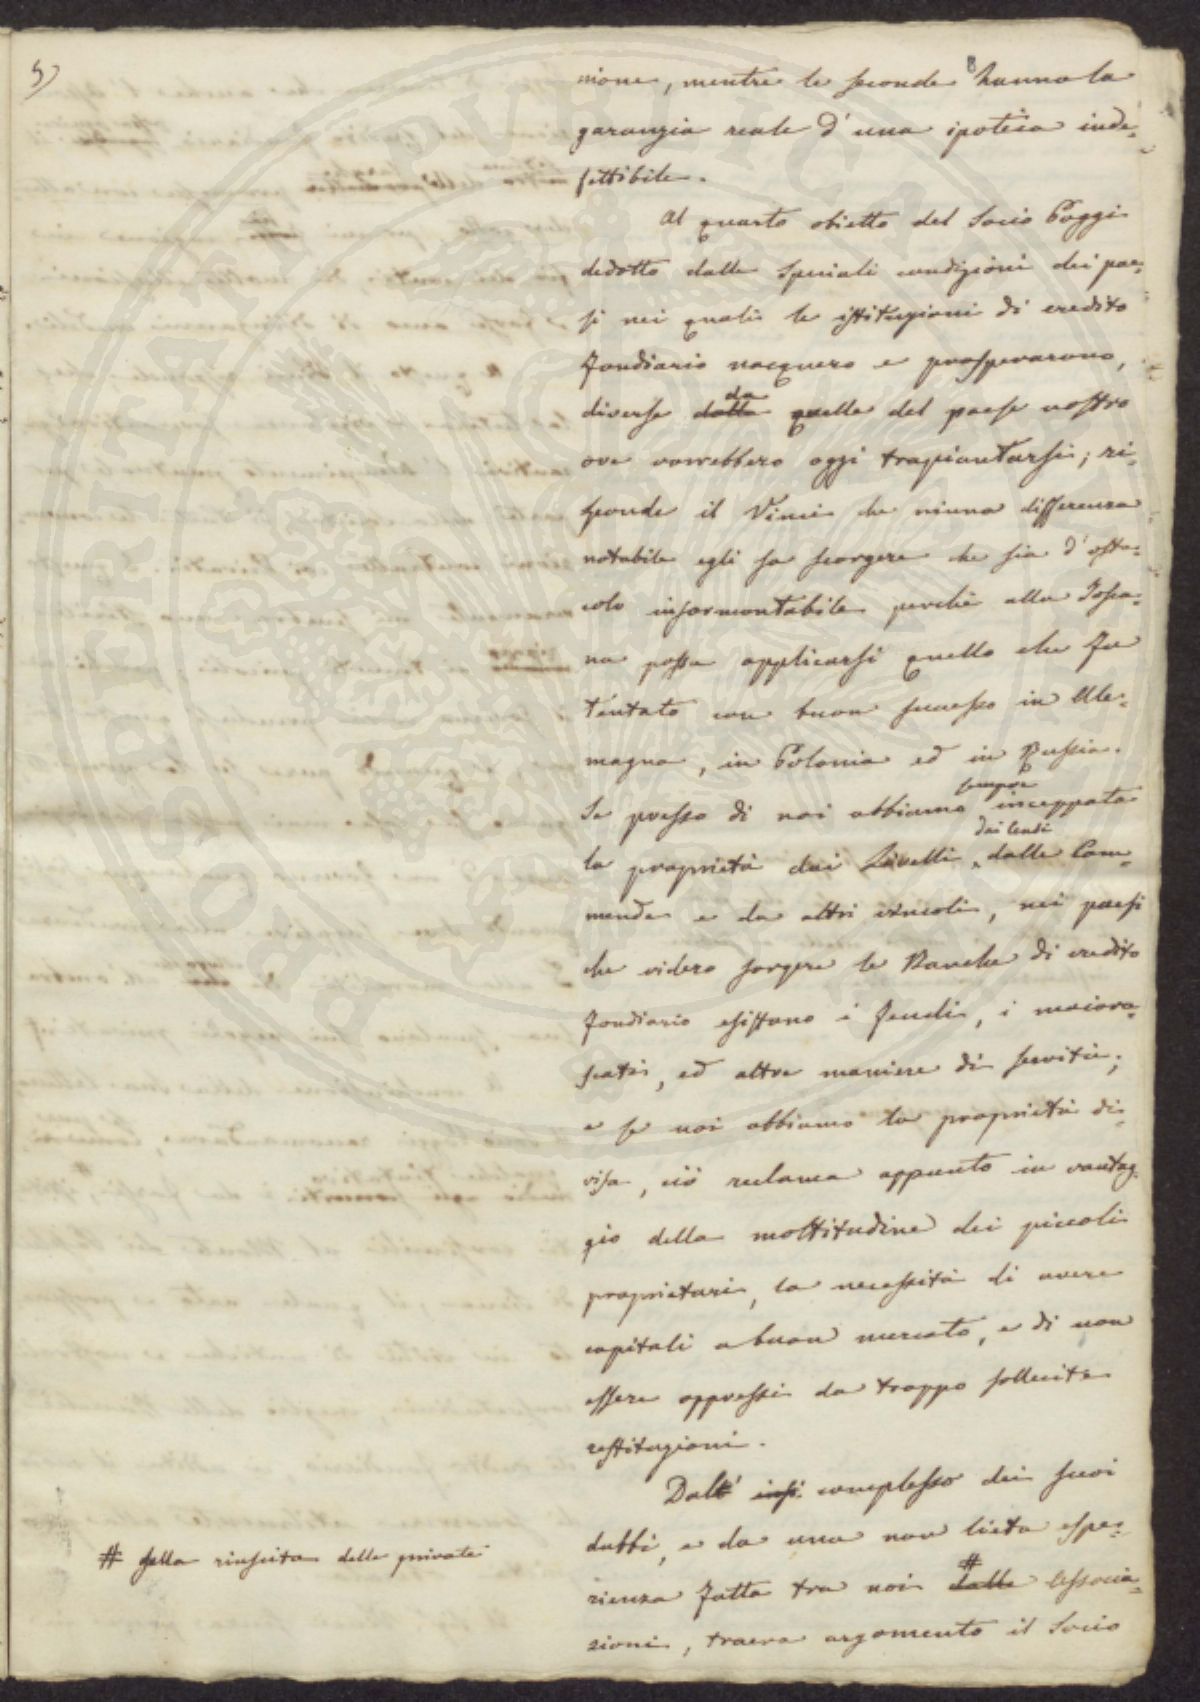 5)
8
nione, mentre le seconde hanno la
garanzia reale d'una ipoteca inde-
fettibile.
Al quarto obietto del Socio Poggi
dedotto dalle speciali condizioni dei pae-
si nei quali le istituzioni di credito
fondiario nacquero e prosperarono,
da
diverse dalle quelle del paese nostro
ove vorrebbero oggi trapiantarsi; ri-
sponde il Vinci che niuna differenza
notabile egli sa scorgere che sia d'osta-
colo insormontabile perchè alla Tosca-
na possa applicarsi quello che fu
tentato con buon successo in Ale-
magna, in Polonia ed in Russia.
sempre
Se presso di noi abbiamo inceppata
dai Censi
la proprietà dai Livelli, dalle Com-
mende e da altri vincoli, nei paesi
che videro sorgere le Banche di credito
fondiario esistano i feudi, i maiora-
scati, ed altre maniere di servitù;
e se noi abbiamo la proprietà di-
visa, ciò reclama appunto in vantag-
gio della moltitudine dei piccoli
proprietari, la necessità di avere
capitali a buon mercato, e di non
essere oppressi da troppo sollecite
restituzioni.
Dall' insi complesso dei suoi
dubbi, e da una non lieta espe-
#
rienza fatta tra noi dalle Associa-
zioni, traeva argomento il Socio
# della riuscita delle private
PROSPERITATI PVBLICAE